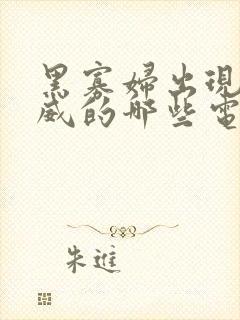 黑寡婦出現
威的那些電
朱進